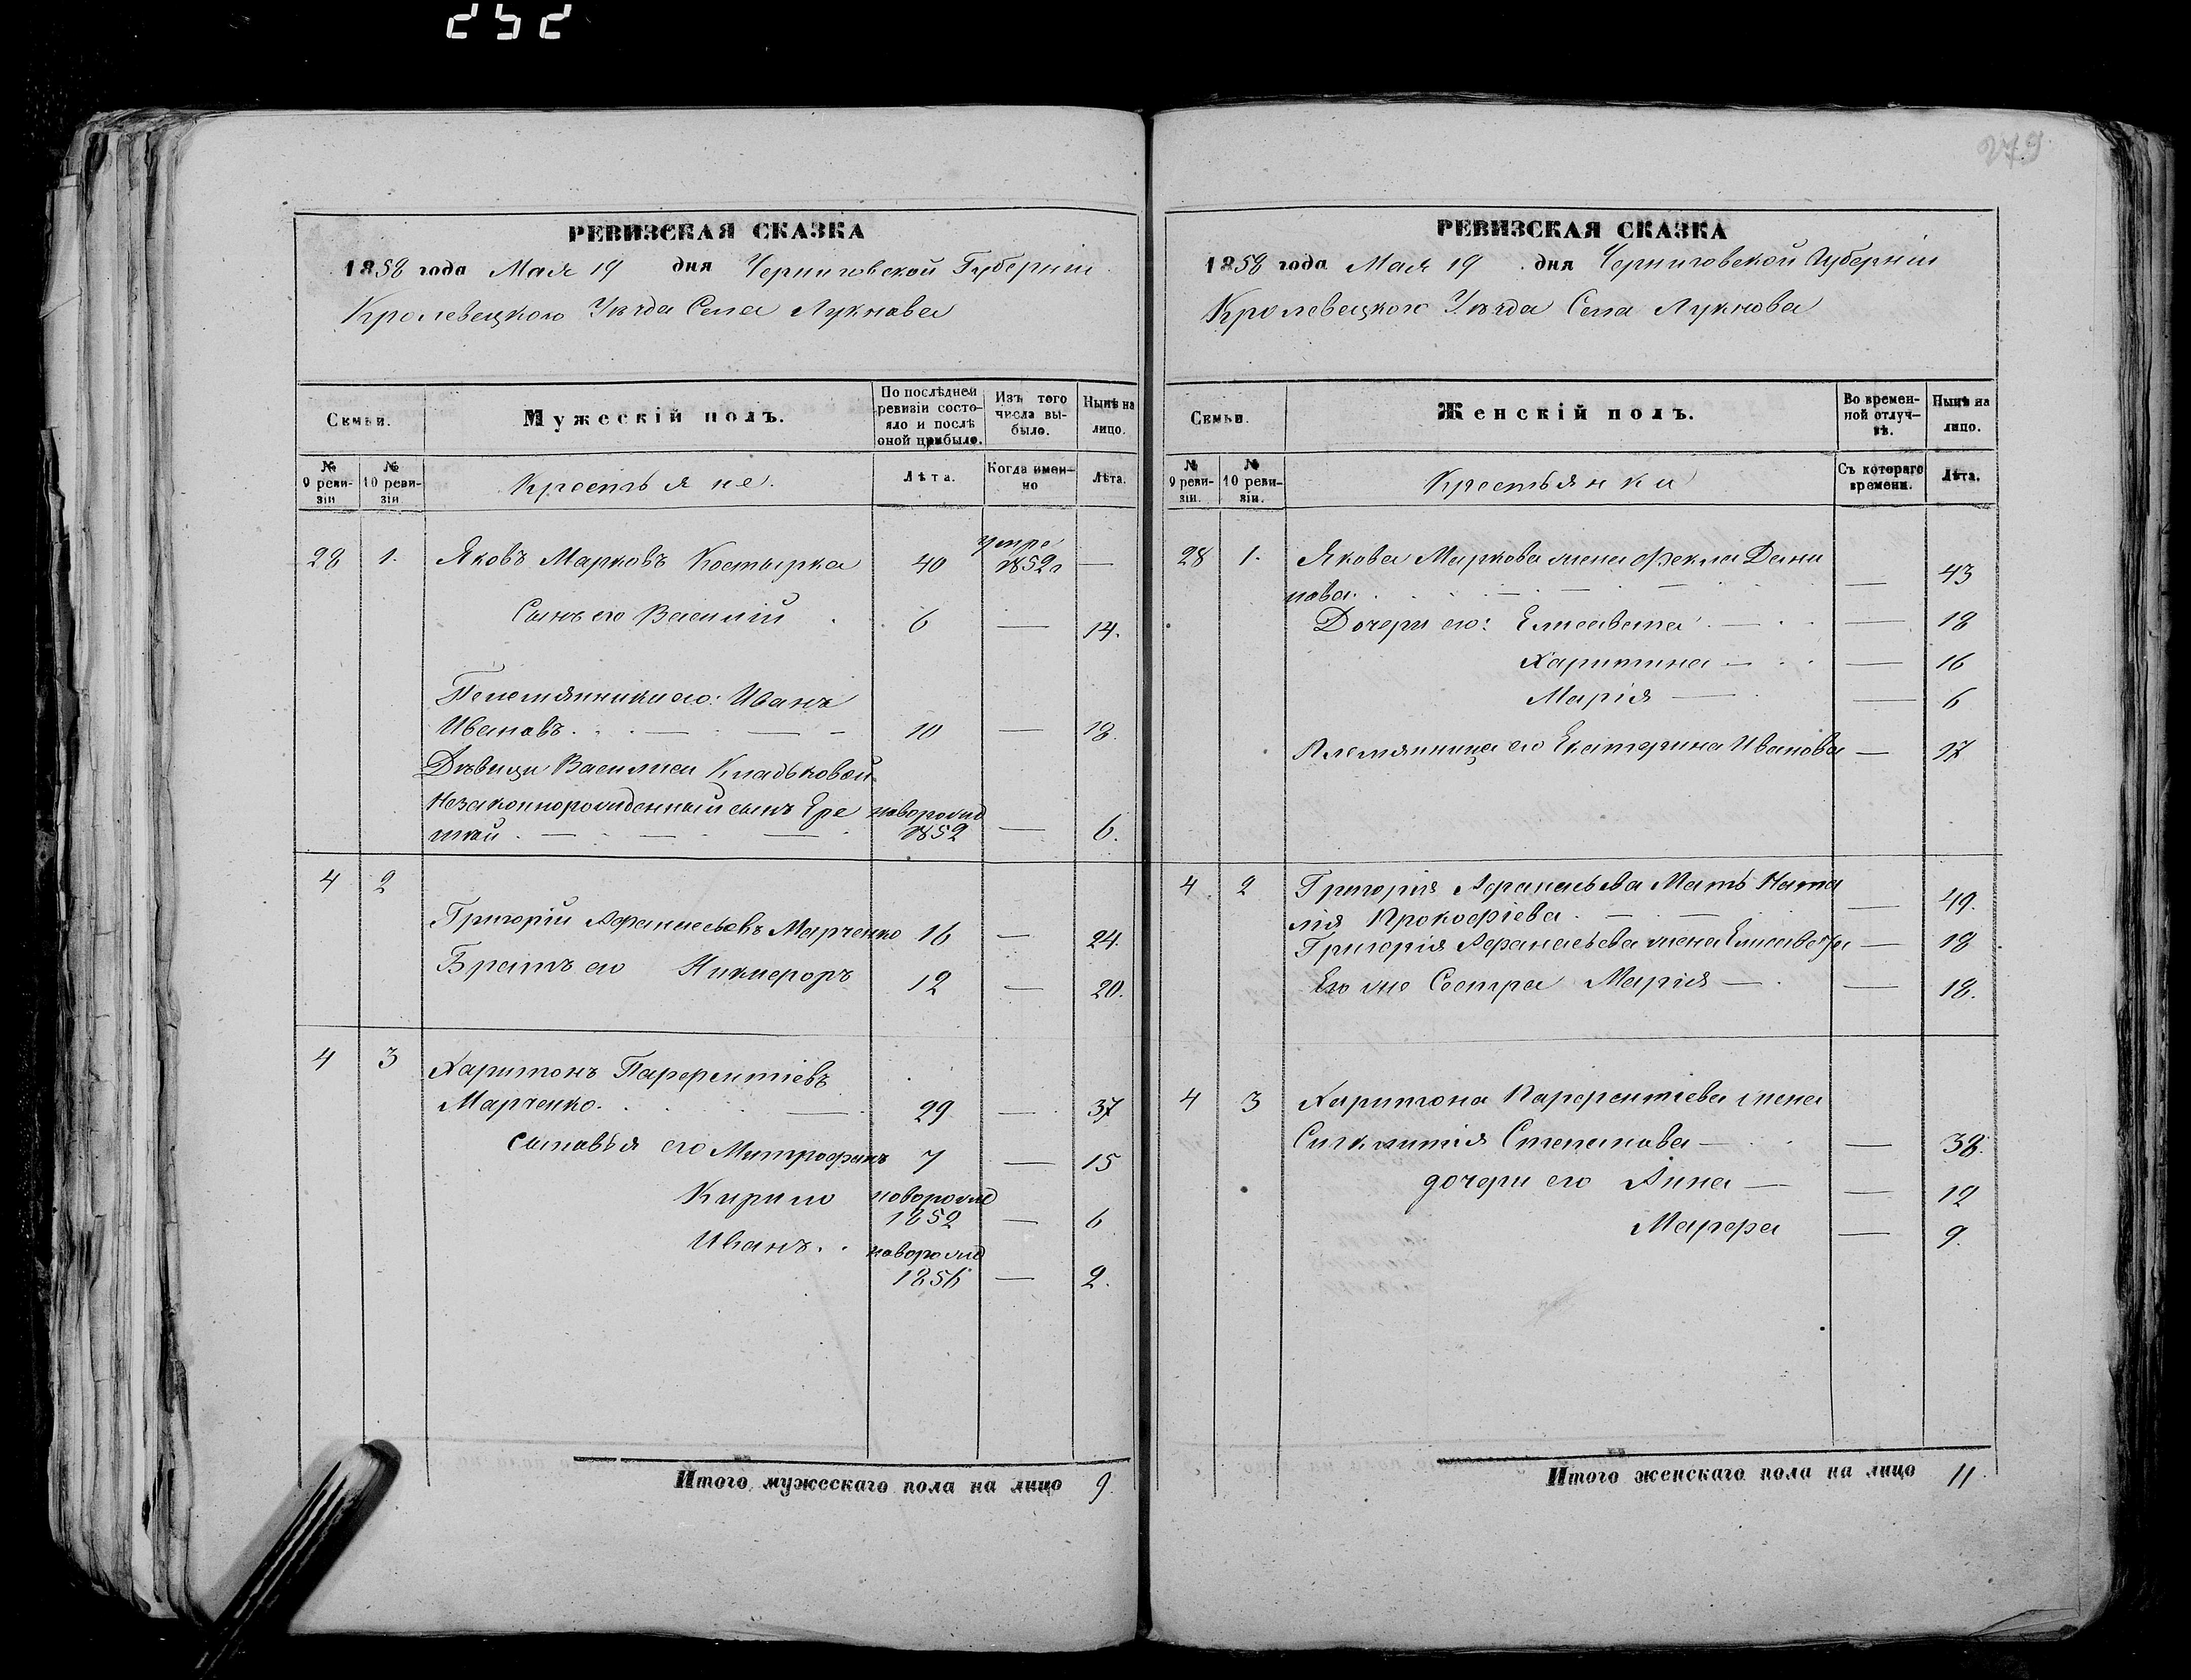 252
279
РЕВИЗСКАЯ СКАЗКА
1858 года Мая 19 дня Черниговской Губерніи
Кролевецкого Уѣзда Села Лукнова
Семьи.
Мужескій полъ.
По послѣдней ревизіи состояло и послѣ оной прибыло.
Изъ того числа выбыло.
Нынѣ на лицо.
№ 9 ревизіи
№ 10 ревизіи
Крестьяне.
Лѣта.
Когда именно
Лѣта.
28 1. Яковъ Марковъ Костырка 40 умре 1852 —
Сынъ его Василій 6 — 14.
Племянники его: Иванъ
Ивановъ. 10 — 18.
Дѣвици Василисы Кладьковой
Незаконнорожденный сынъ Ере новорожд
мѣй 1852 — 6.
4 2
Григорій Афанасьевъ Марченко 16 — 24.
Братъ его Никифоръ 12 — 20.
4 3 Харитонъ Парфентіевъ
Марченко. 29 — 37
сыновья его Митрофанъ 7 — 15
Кирило новорожд
1852 — 6
Иванъ новорожд
1856 — 2.
Итого мужескаго пола на лицо 9.
РЕВИЗСКАЯ СКАЗКА
1858 года Мая 19 дня Черниговской Губерніи
Кролевецкого Уѣзда Села Лукнова
Семьи.
Женскій полъ.
Во временной отлучкѣ.
Нынѣ на лицо.
№ 9 ревизіи.
№ 10 ревизіи.
Крестьянки
Съ котораго времени.
Лѣта.
28 1. Якова Маркова жена Фекла Дани
лова. — 43
Дочери его: Елисавета — 18
Харитина — 16
Марія — 6
Племянница его Екатерина Иванова — 17
4 2 Григорія Афанасьева Мать Ната
лія Прокофіева. — 49.
Григорія Афанасьева жена Елисавета — 18
Его же Сестра Марія — 18.
4 3 Харитона Парфентіева жена
Синклитія Степанова — 38.
дочери его Анна — 12
Марфа — 9.
Итого женскаго пола на лицо 11.